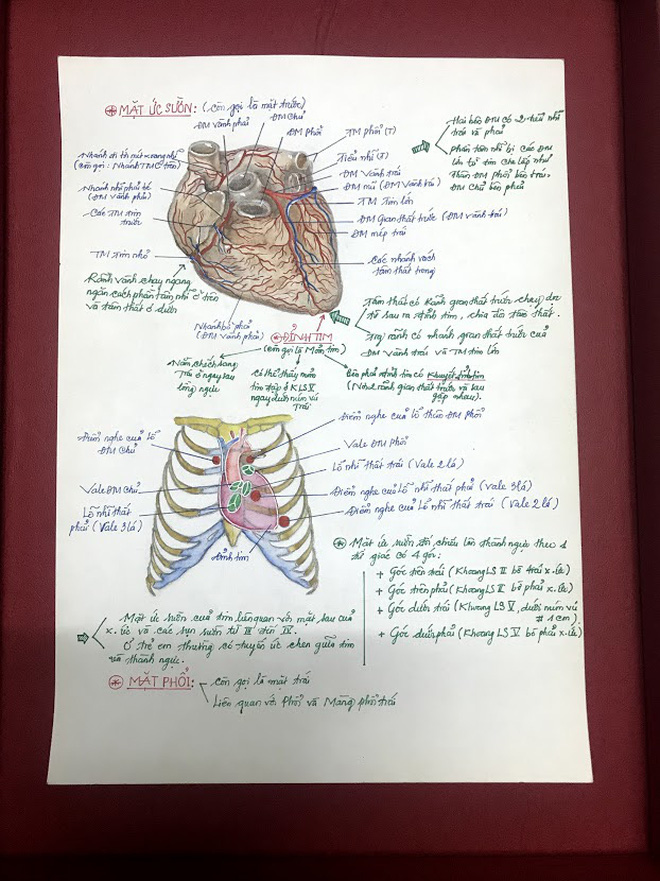 ⊛ MẶT ỨC SƯỜN: (còn gọi là mặt trước)
ĐM Chủ
ĐM vành phải
ĐM Phổi
TM phổi (T)
Tiểu nhĩ (T)
ĐM Vành trái
ĐM mũ (ĐM Vành trái)
TM tim lớn
ĐM Gian thất trước (ĐM vành trái)
ĐM mép trái
Các nhánh vách
tâm thất trong
(còn gọi: Nhánh TMC trên)
Nhánh nhĩ phải bé
(ĐM vành phải)
Các TM tim
trước
TM tim nhỏ
Rãnh vành chạy ngang
ngăn cách phần tâm nhĩ ở trên
và tâm thất ở dưới
Nhánh bờ phải
(ĐM vành phải)
Hai bên ĐM có 2 tiểu nhĩ
trái và phải
phần tâm nhĩ bị các ĐM
lớn từ tim che lấp như
Thân ĐM phổi bên trái,
ĐM chủ bên phải
Tâm thất có Rãnh gian thất trước chạy dọc
từ sau ra đỉnh tim, chia đôi tâm thất.
Trong rãnh có nhánh gian thất trước của
ĐM vành trái và TM tim lớn
⊛ ĐỈNH TIM
(còn gọi là Mỏm tim)
Nằm chếch sang
trái ở ngay sau
lồng ngực
Có thể thấy mỏm
tim đập ở KLS V
ngay dưới núm vú
Trái
Bên phải đỉnh tim có Khuyết đỉnh tim
(Nơi 2 rãnh gian thất trước và sau
gặp nhau).
Điểm nghe của Lỗ thân ĐM Phổi
Điểm nghe của Lỗ
ĐM Chủ
Vale ĐM Phổi
Lỗ nhĩ thất trái (Vale 2 lá)
Vale ĐM Chủ
Điểm nghe của Lỗ nhĩ thất phải (Vale 3 lá)
Lỗ nhĩ thất
phải (Vale 3 lá)
Điểm nghe của Lỗ nhĩ thất trái (Vale 2 lá)
Đỉnh tim
⊛ Mặt ức sườn đối chiếu lên thành ngực theo 1
tứ giác có 4 góc:
+ Góc trên trái (Khoang LS II bờ trái x.ức)
+ Góc trên phải (Khoang LS II bờ phải x.ức)
+ Góc dưới trái (Khoang LS V, dưới núm vú
# 1 cm)
+ Góc dưới phải (Khoang LS V bờ phải x.ức)
Mặt ức sườn của tim liên quan với mặt sau của
x.ức và các sụn sườn từ III đến IV.
Ở trẻ em thường có tuyến ức chen giữa tim
và thành ngực.
⊛ MẶT PHỔI:
còn gọi là mặt trái
Liên quan với Phổi và Màng phổi trái